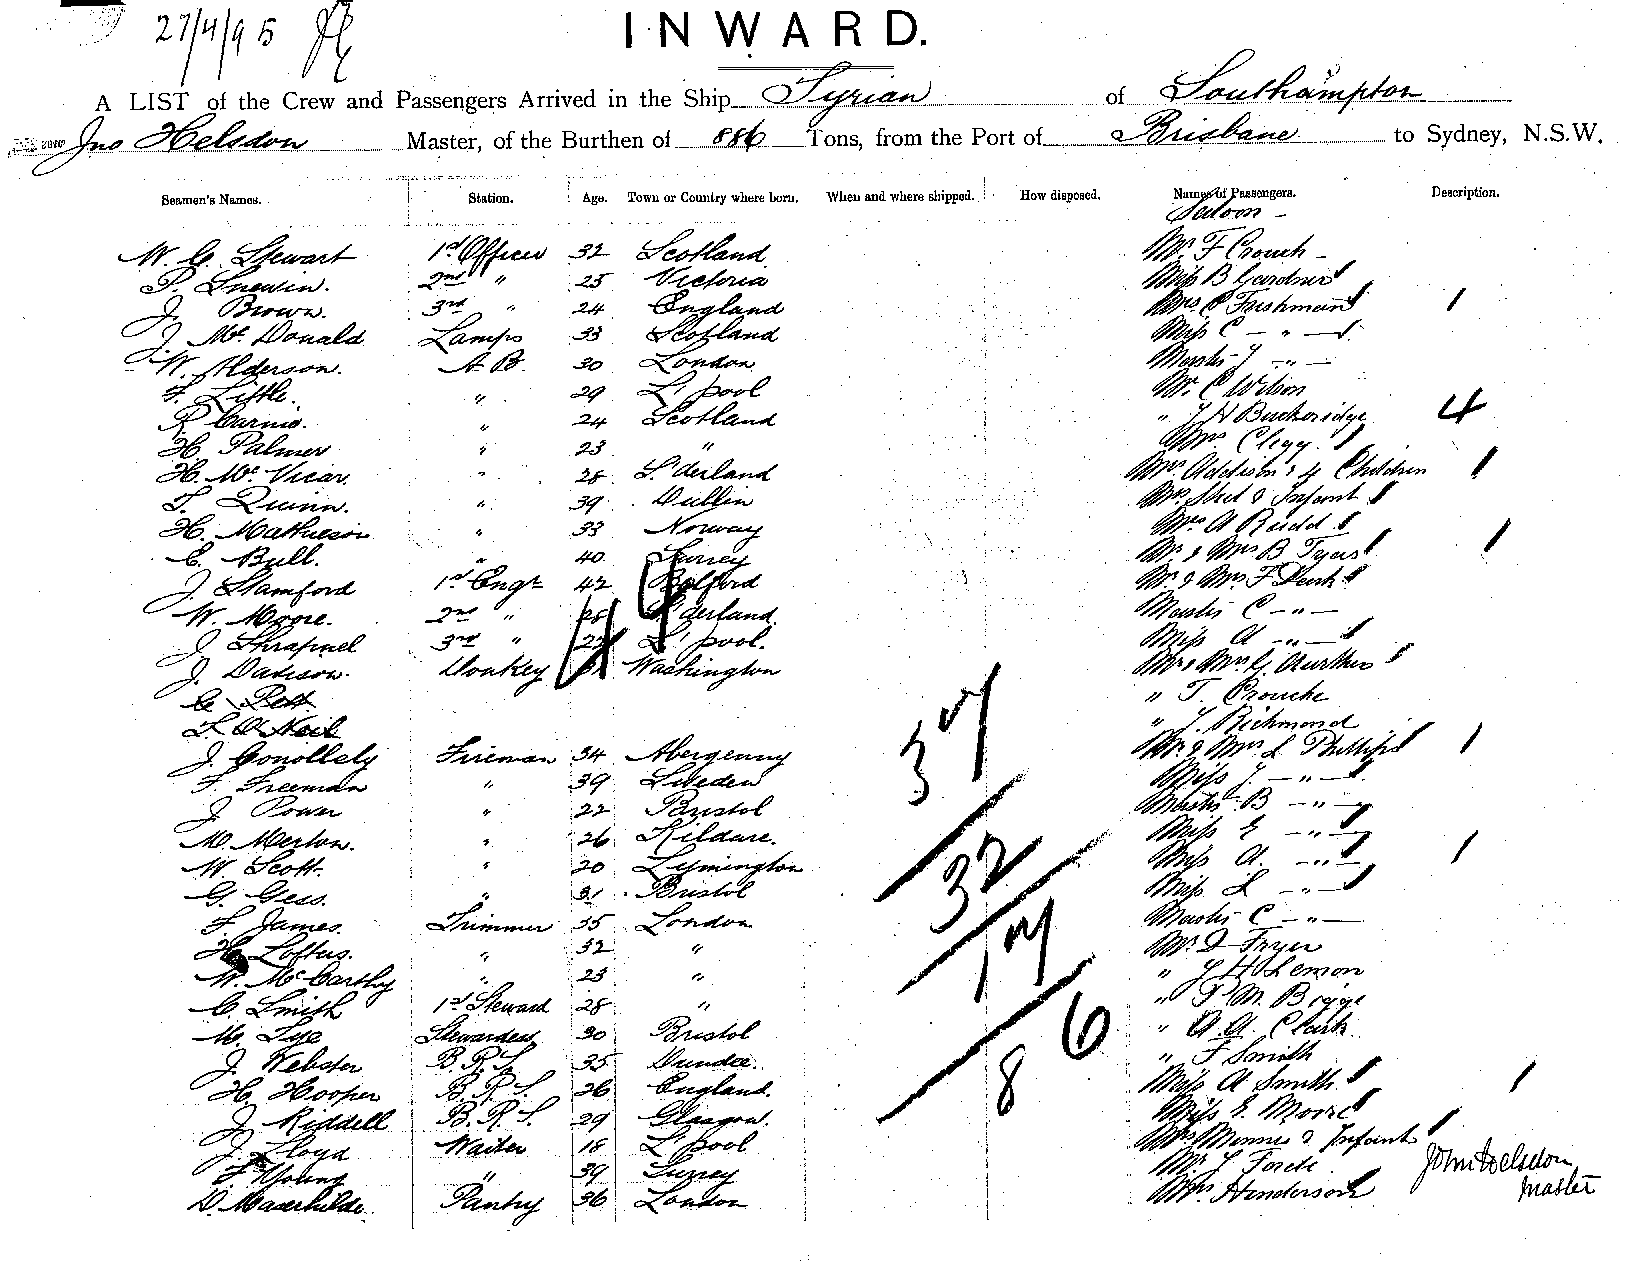 27/4/95
INWARD.
A LIST of the Crew and Passengers Arrived in the Ship Syrian of Southampton
Jno Helsdon Master, of the Burthen of 886 Tons, from the Port of Brisbane to Sydney, N.S.W.
Seamen's Names. Station. Age. Town or Country where born. When and where shipped. How disposed. Names of Passengers. Description.
Saloon -
W. C. Stewart 1st Officer 32 Scotland Mr. F Crouch -
P. Snewin. 2nd " 25 Victoria Miss B Gardner
J. Brown. 3rd " 24 England Mrs C Fishmann 1
J. Mc Donald Lamps 33 Scotland Miss C - " -
W. Alderson. A.B. 30 London Master J - " -
F. Little. " 29 L'pool Mr. C Wilson
R. Carnie. " 24 Scotland " J H Buckeridge 4
H. Palmer " 23 " Mrs Clegg
H. Mc Vicar. " 28 S'derland Mrs Addison & 4 Children 1
T. Quinn. " 39 Dublin Mrs & Infant
H. Mathieson " 33 Norway Mrs A Rudd
C. Bull. " 40 Surrey Mr. & Mrs B Tyers 1
J. Stamford 1st Engr 42 Mr. & Mrs F
W. Moore. 2nd " 28 S'derland Master C - " -
J. Shrapnel 3rd " 22 L'pool. Miss A - " -
J. Davison. Donkey Washington Mr & Mrs G. Aurther
C. Pett " T. Crouche
T. O'Neil " J. Richmond
J. Conollely Fireman 34 Abergenny Mr. & Mrs L Phillips 1
F. Freeman " 39 Sweden Miss J. - " -
J. Power " 22 Bristol Master B - " -
M. Merton. " 26 Kildare. Miss E - " -
W. Scott. " 20 Lymington Miss A. - " - 1
G. Gess. " 31 Bristol Miss L - " -
F. James. Trimmer 35 London Master C - " -
H. Loftus. " 32 " Mr. D Fryer
W. McCarthy " 23 " " J H Lemon
C. Smith 1st Steward 28 " " P. M. Bigge
M. Tye Stewardess 30 Bristol " A. A. Clark
J. Webster B.R.S. 35 Dundee. " F Smith
H. Hooper B.R.S. 26 England. Miss A Smith 1
J. Riddell B.R.S. 29 Glasgow. Miss E. Moore
J. Lloyd Waiter 18 L'pool Mrs Minnes & Infant
F. Young " 39 Surrey Mr. J Forde
D. Pantry 36 London Mrs Henderson
37
32
17
6
8
John Helsdon
Master